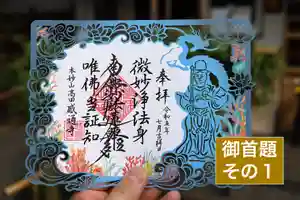 奉拝
令和五年
七月吉日
微妙浄法身
南無妙法蓮華経
唯佛当証知
本妙山高田感通寺
御首題
その1